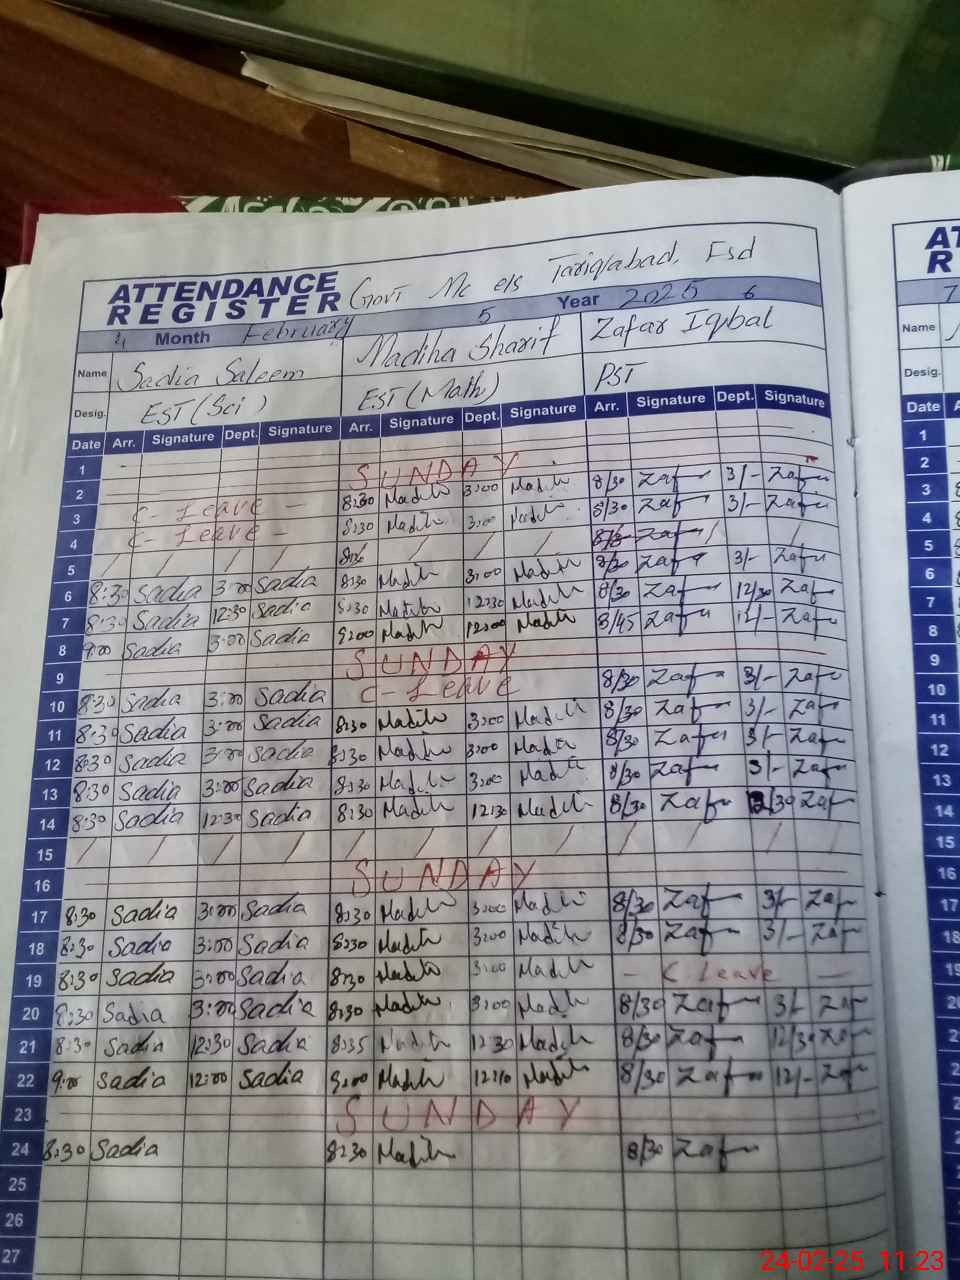 ATTENDANCE
REGISTER
Govt Mc e/s Tariqabad, Fsd
4 Month February 5 Year 2025 6
Name Sadia Saleem Madiha Sharif Zafar Iqbal
Desig. EST (Sci) EST (Math) PST
Date Arr. Signature Dept. Signature Arr. Signature Dept. Signature Arr. Signature Dept. Signature
1
2 SUNDAY
3 C- Leave - 8:30 Madih 3:00 Madih 8/30 Zaf 3/- Zaf
4 C- Leave - 8:30 Madih 3:00 Madih 8/30 Zaf 3/- Zaf
5 / / / / / / / Zaf /
6 8:30 Sadia 3:00 Sadia 8:30 Madih 3:00 Madih 8/30 Zaf 3/- Zaf
7 8:30 Sadia 12:30 Sadia 8:30 Madih 12:30 Madih 8/30 Zaf 12/30 Zaf
8 9:00 Sadia 3:00 Sadia 9:00 Madih 12:00 Madih 8/45 Zaf 12/- Zaf
9 SUNDAY
10 8:30 Sadia 3:00 Sadia C- Leave 8/30 Zaf 3/- Zaf
11 8:30 Sadia 3:00 Sadia 8:30 Madih 3:00 Madih 8/30 Zaf 3/- Zaf
12 8:30 Sadia 3:00 Sadia 8:30 Madih 3:00 Madih 8/30 Zaf 3/- Zaf
13 8:30 Sadia 3:00 Sadia 8:30 Madih 3:00 Madih 8/30 Zaf 3/- Zaf
14 8:30 Sadia 12:30 Sadia 8:30 Madih 12:30 Madih 8/30 Zaf 12/30 Zaf
15 / / / / / / / / / / / /
16 SUNDAY
17 8:30 Sadia 3:00 Sadia 8:30 Madih 3:00 Madih 8/30 Zaf 3/- Zaf
18 8:30 Sadia 3:00 Sadia 8:30 Madih 3:00 Madih 8/30 Zaf 3/- Zaf
19 8:30 Sadia 3:00 Sadia 8:30 Madih 3:00 Madih - C. Leave -
20 8:30 Sadia 3:00 Sadia 8:30 Madih 3:00 Madih 8/30 Zaf 3/- Zaf
21 8:30 Sadia 12:30 Sadia 8:35 Madih 12:30 Madih 8/30 Zaf 12/30 Zaf
22 9:00 Sadia 12:00 Sadia 9:00 Madih Madih 8/30 Zaf 12/- Zaf
23 SUNDAY
24 8:30 Sadia 8:30 Madih 8/30 Zaf
25
26
27
7
Name
Desig.
Date
1
2
3
4
5
6
7
8
9
10
11
12
13
14
15
16
17
18
19
20
21
22
24-02-25 11:23